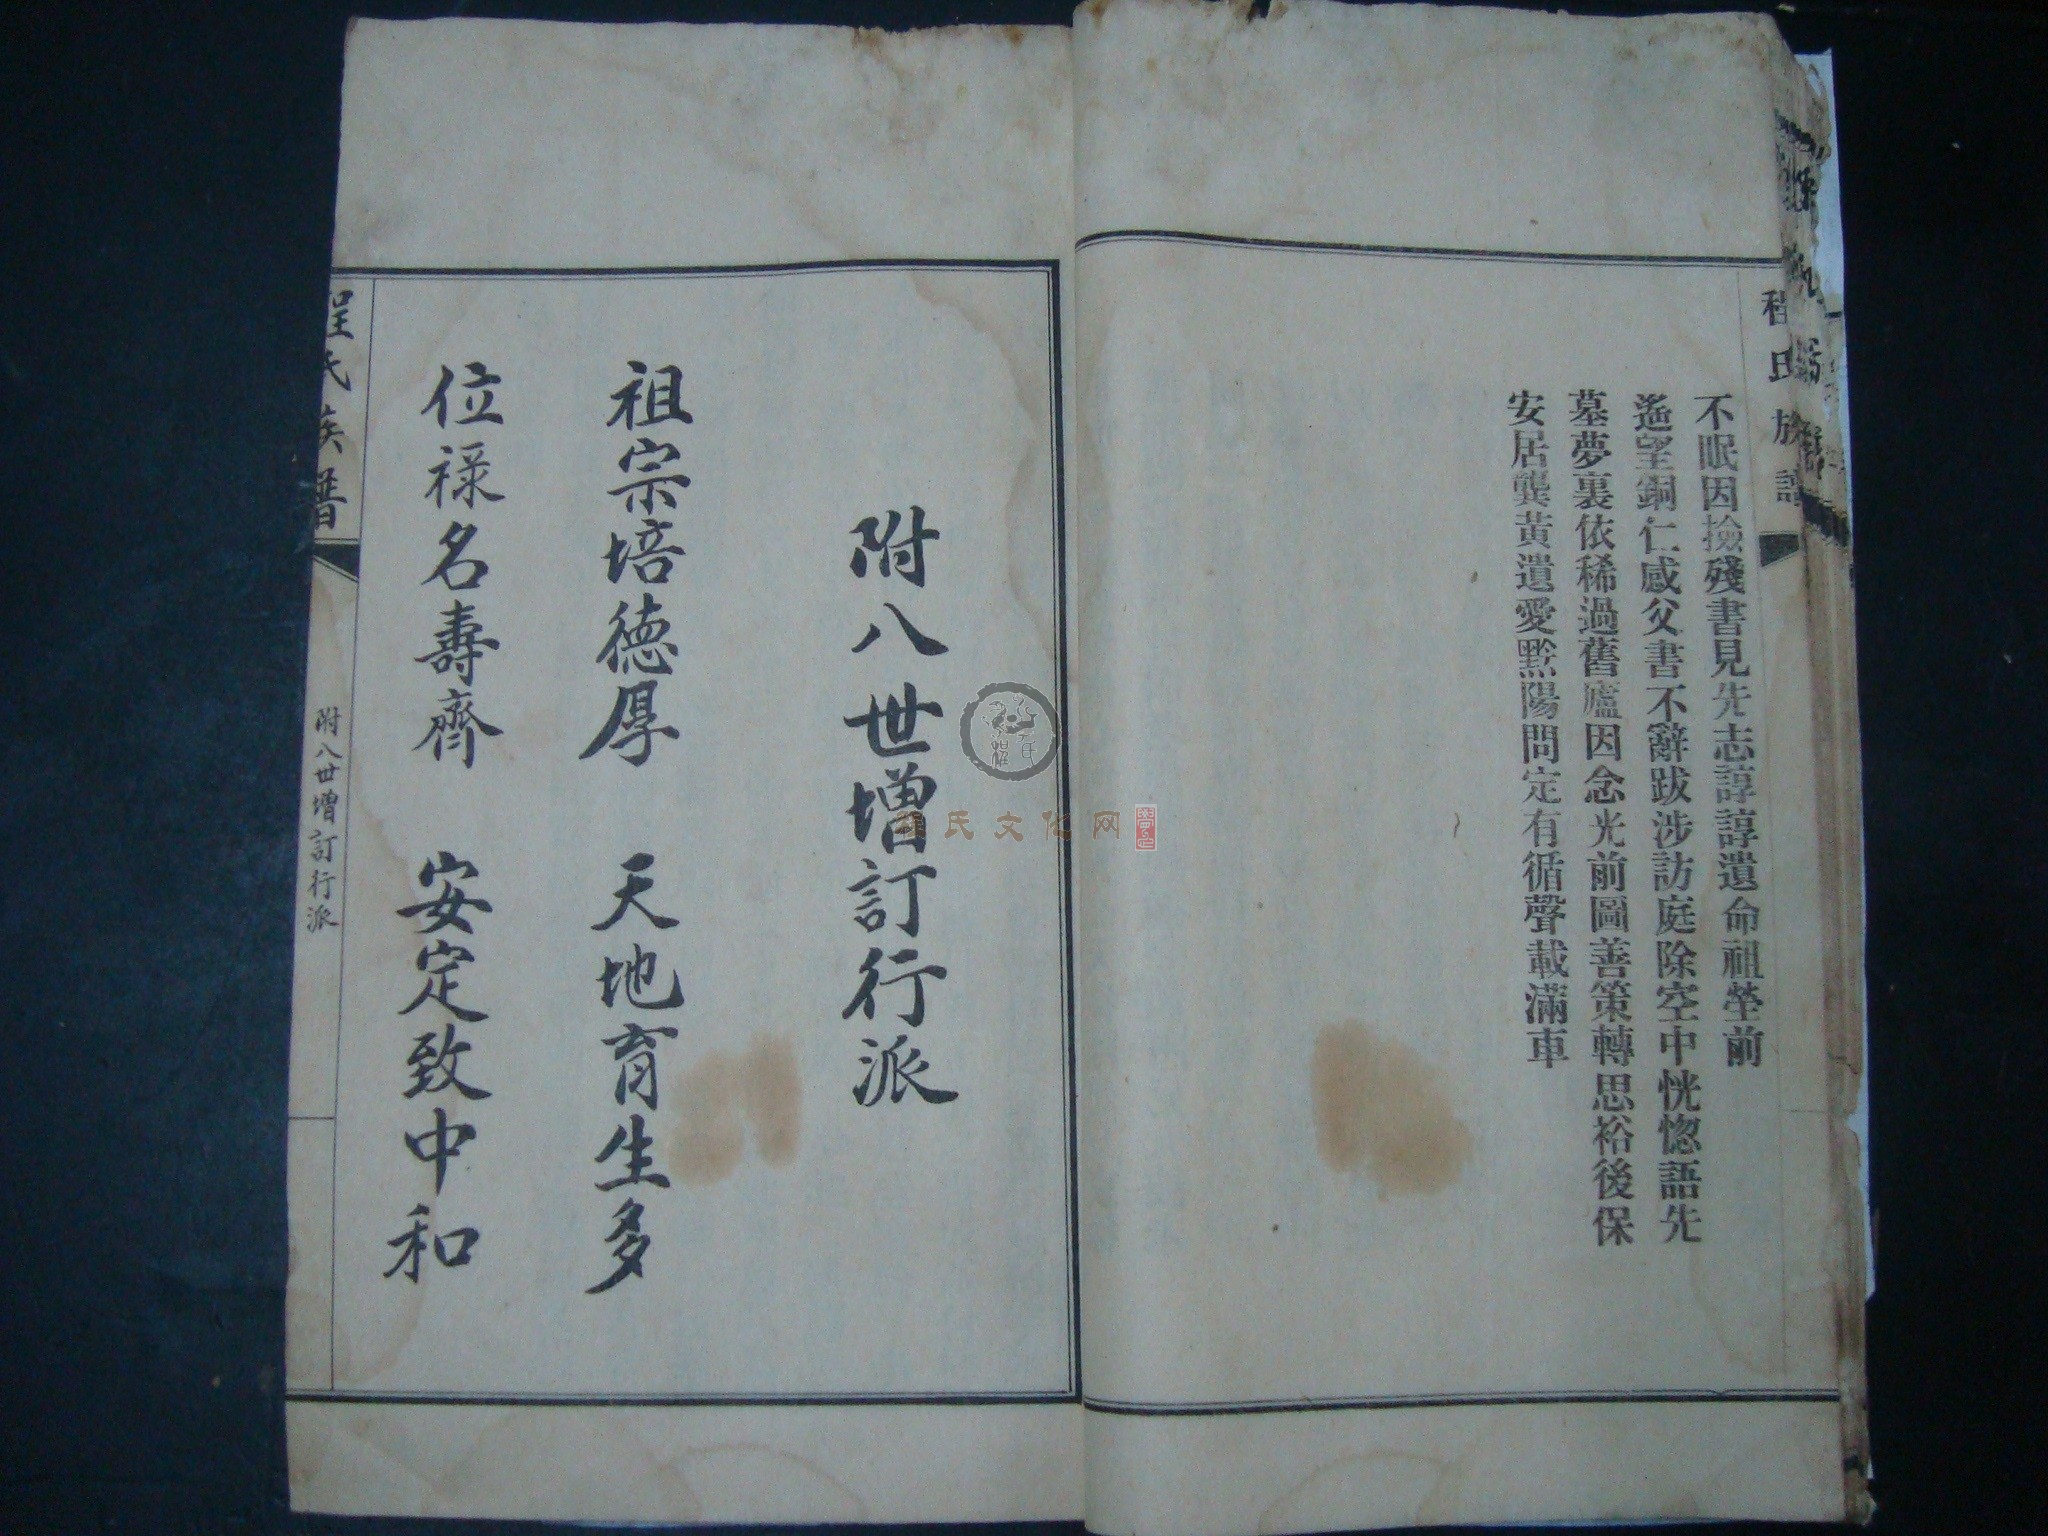 程氏族譜
不眠因撿殘書見先志諄諄遺命祖塋前
遙望銅仁感父書不辭跋涉訪庭除空中恍惚語先
墓夢裏依稀過舊廬因念光前圖善策轉思裕後保
安居龔黃遺愛黔陽問定有循聲載滿車
附八世增訂行派
祖宗培德厚 天地育生多
位祿名壽齊 安定致中和
程氏族譜
附八世增訂行派
程氏文化网
程氏